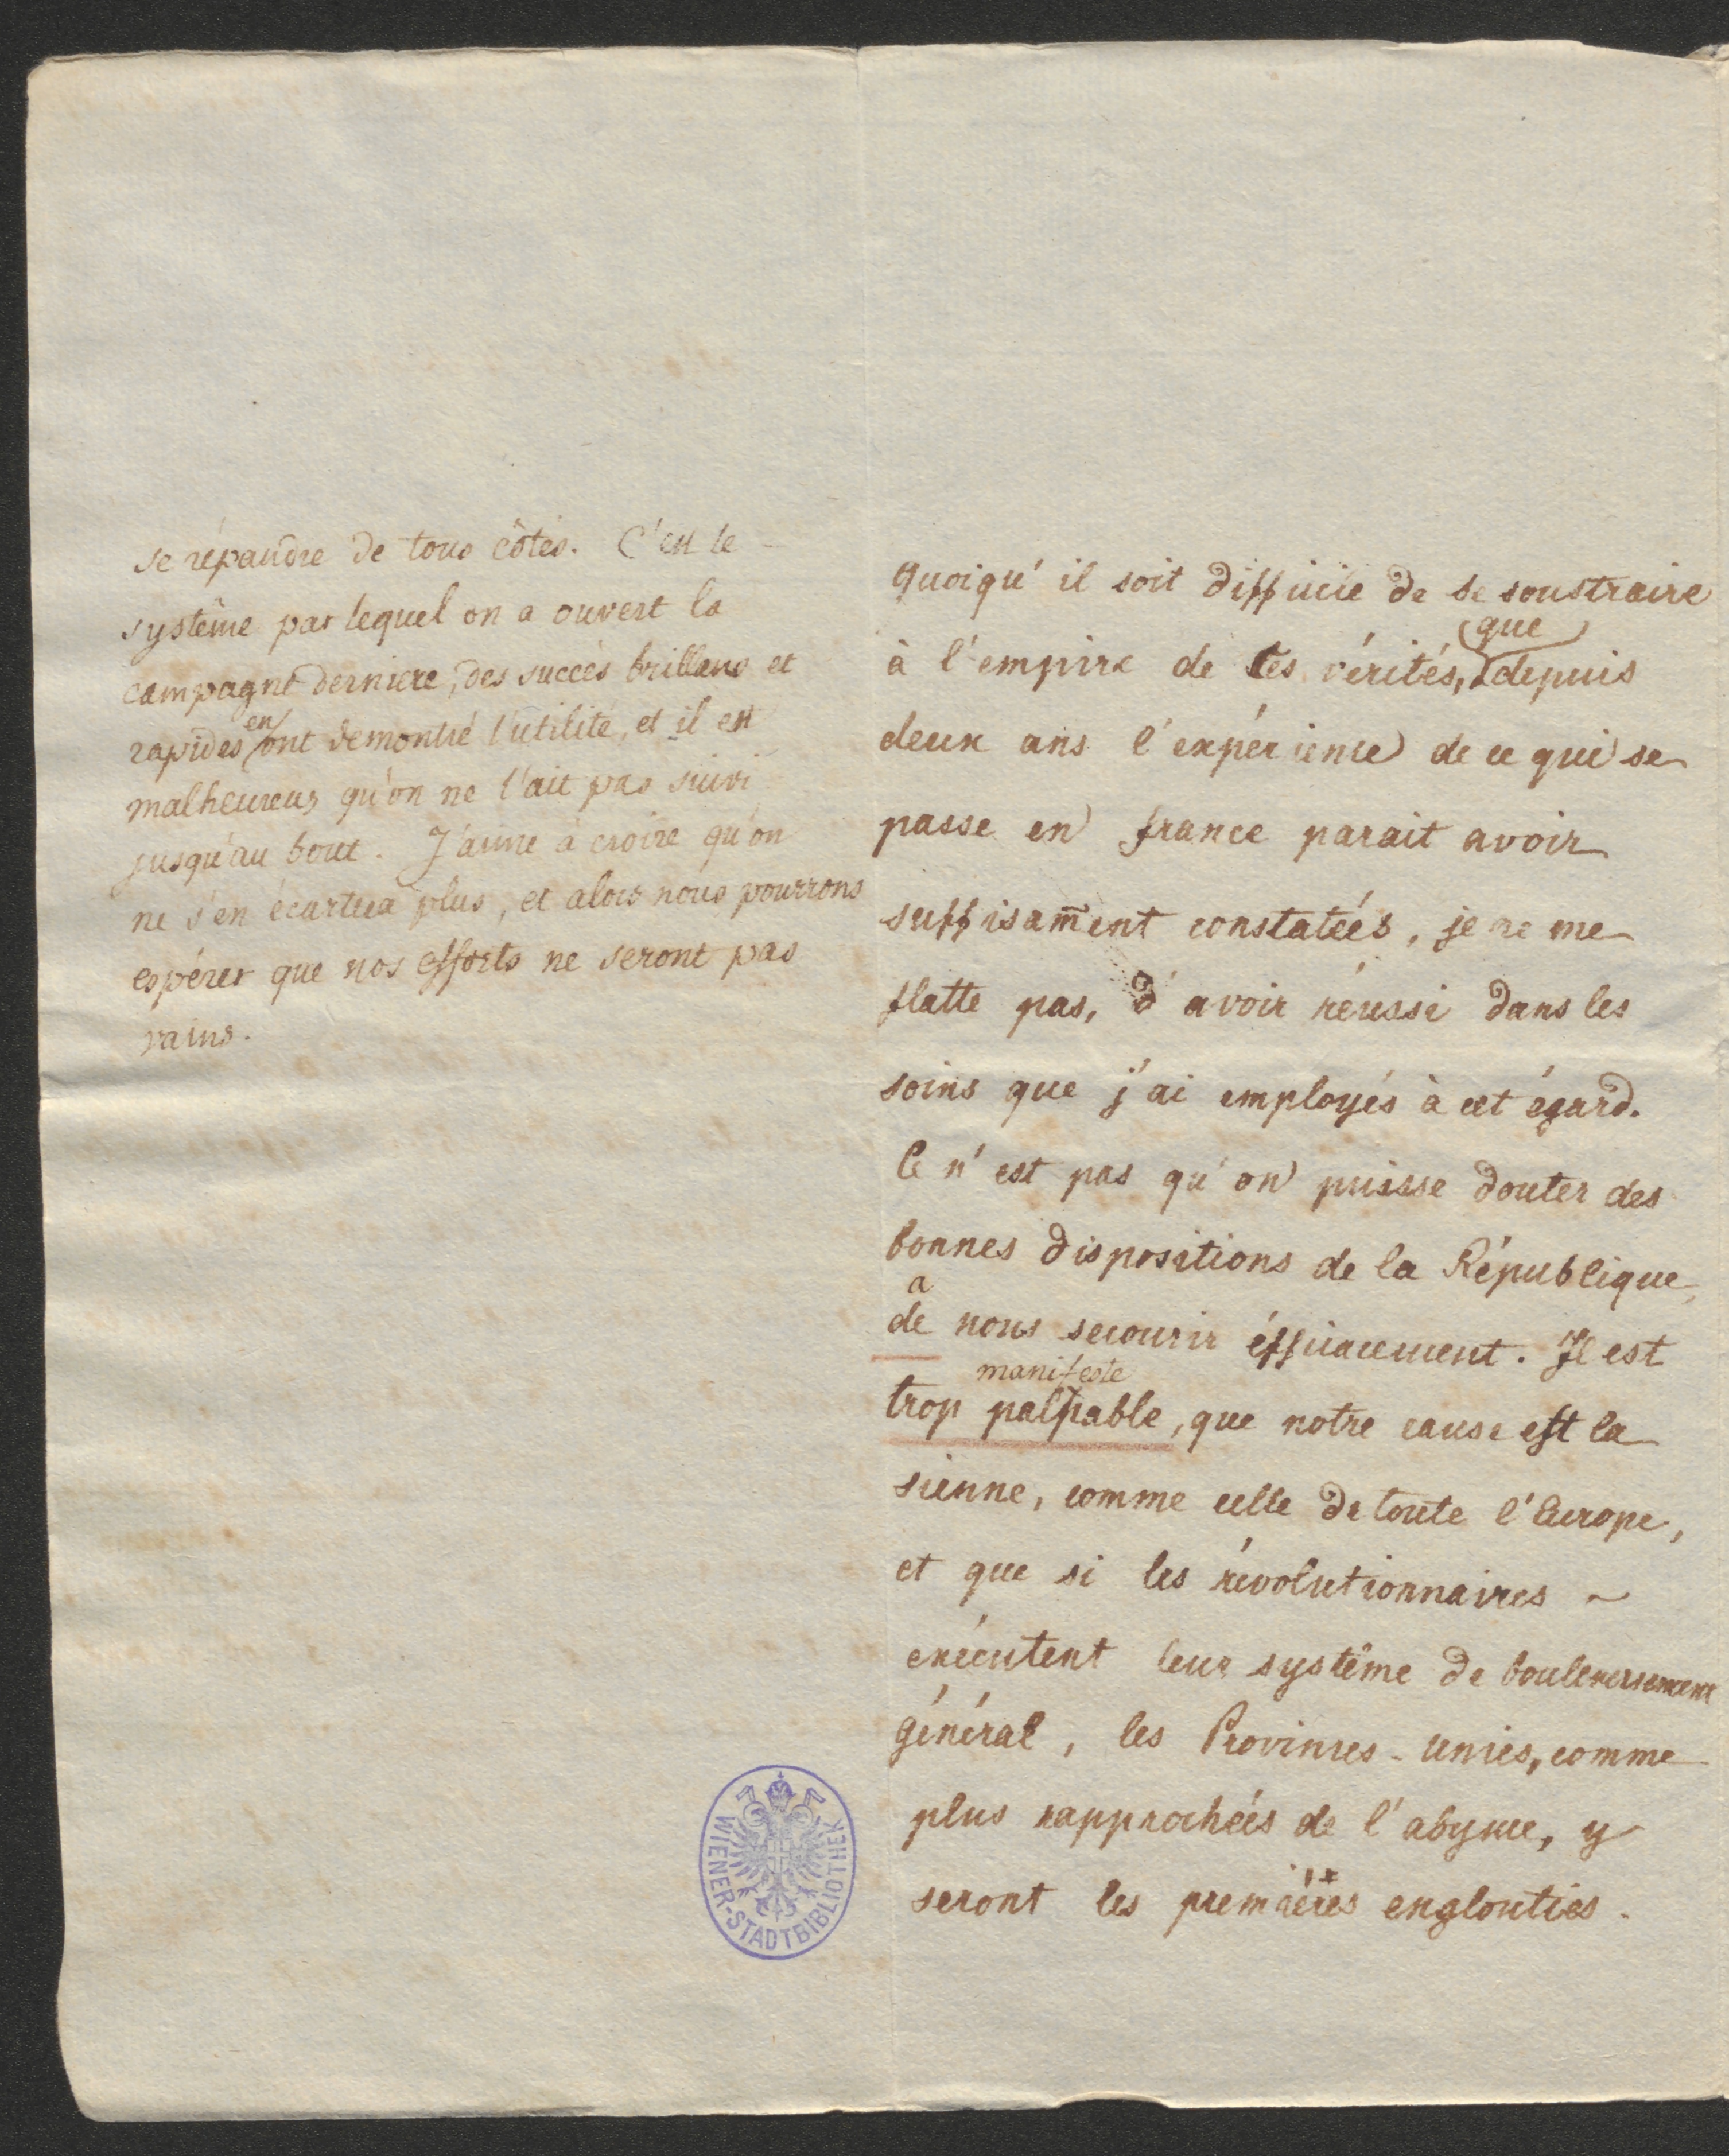 se répandre de tous côtés. C'est le
systême par lequel on a ouvert la
campagne derniere, des succès brillans et
en
rapides ont demontré l'utilité, et il est
malheureux qu'on ne l'ait pas suivi
jusqu'au bout. J'aime à croire qu'on
ne s'en écartera plus, et alors nous pourrons
espérer que nos efforts ne seront pas
vains.
quoiqu'il soit difficile de se soustraire
que
à l'empire de ces vérités, depuis
deux ans l'expérience de ce qui se
passe en france parait avoir
suffisam̄ent constatées, je ne me
flatte pas, d'avoir réussi dans les
soins que j'ai employés à cet égard.
Ce n'est pas qu'on puisse douter des
bonnes dispositions de la République,
a
de nous secourir éfficacement. Il est
manifeste
trop palpable, que notre cause est la
sienne, comme celle de toute l'Europe,
et que si les révolutionnaires ~
exécutent leur systême de bouleversement
général, les Provinces-unies, comme
plus rapprochées de l'abyme, y
seront les premières englouties.
WIENER-STADTBIBLIOTHEK